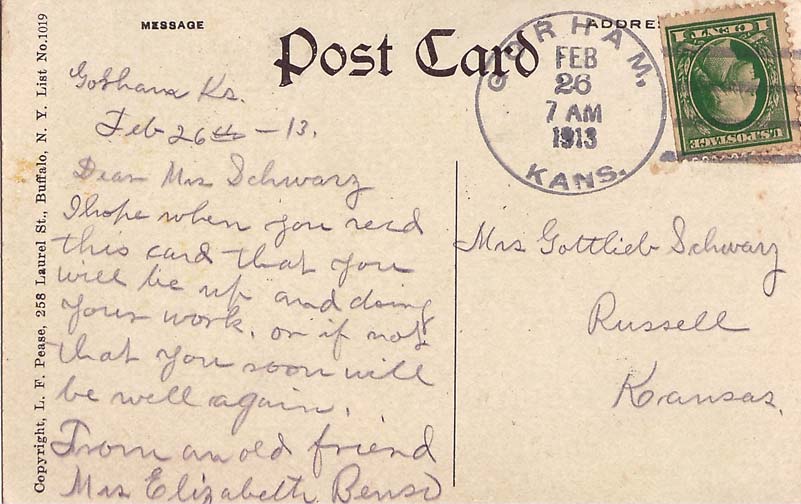 MESSAGE
ADDRE
Post Card
GORHAM,
FEB
26
7 AM
1913
KANS.
1 CENT 1
U.S. POSTAGE
Copyright, L. F. Pease, 258 Laurel St., Buffalo, N. Y. List No. 1019
Gorham Ks.
Feb 26th - 13.
Dear Mrs Schwarz
I hope when you read
this card that you
will be up and doing
your work. or if not
that you soon will
be well again.
From an old friend
Mrs Elizabeth
Mrs Gottlieb Schwarz
Russell
Kansas.